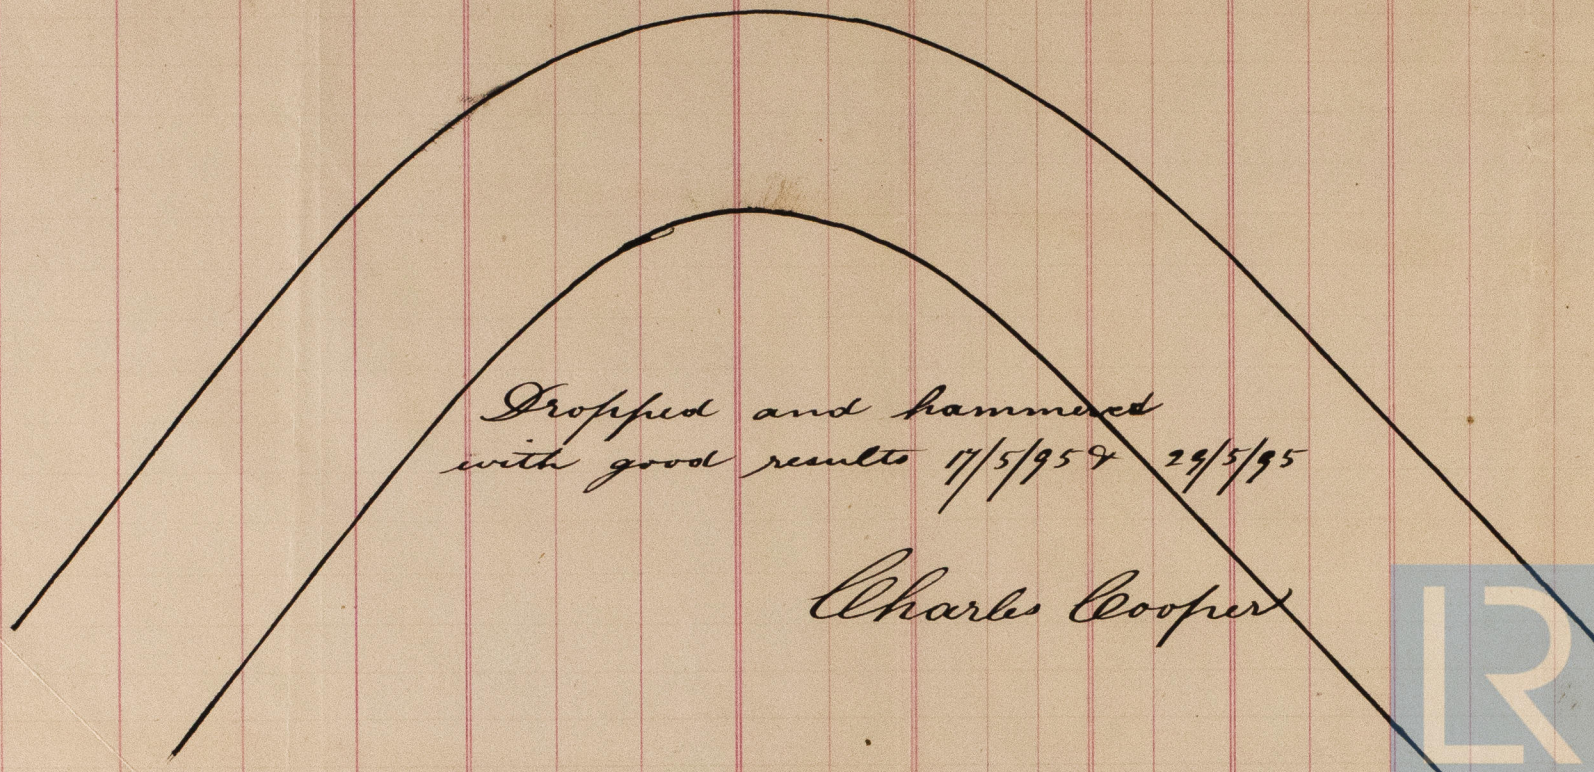 Dropped and hammered
with good results 17/5/95 & 29/5/95
Charles Cooper
LR